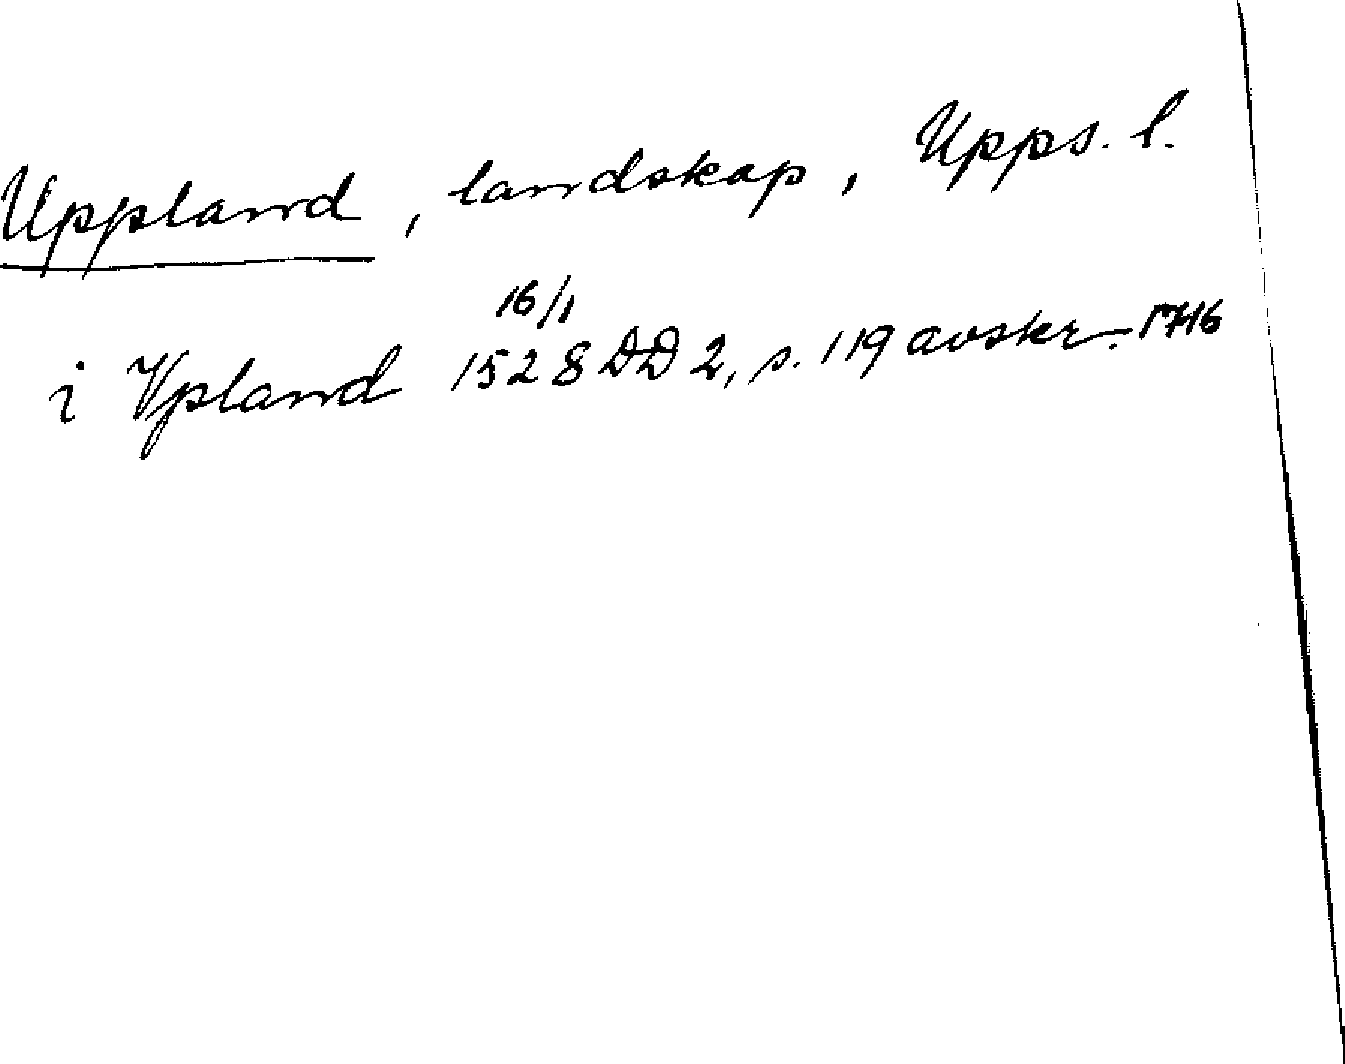 Uppland, landskap, Upps. l.
16/1
i Vpland 1528 DD 2, s. 119 avskr. 1716